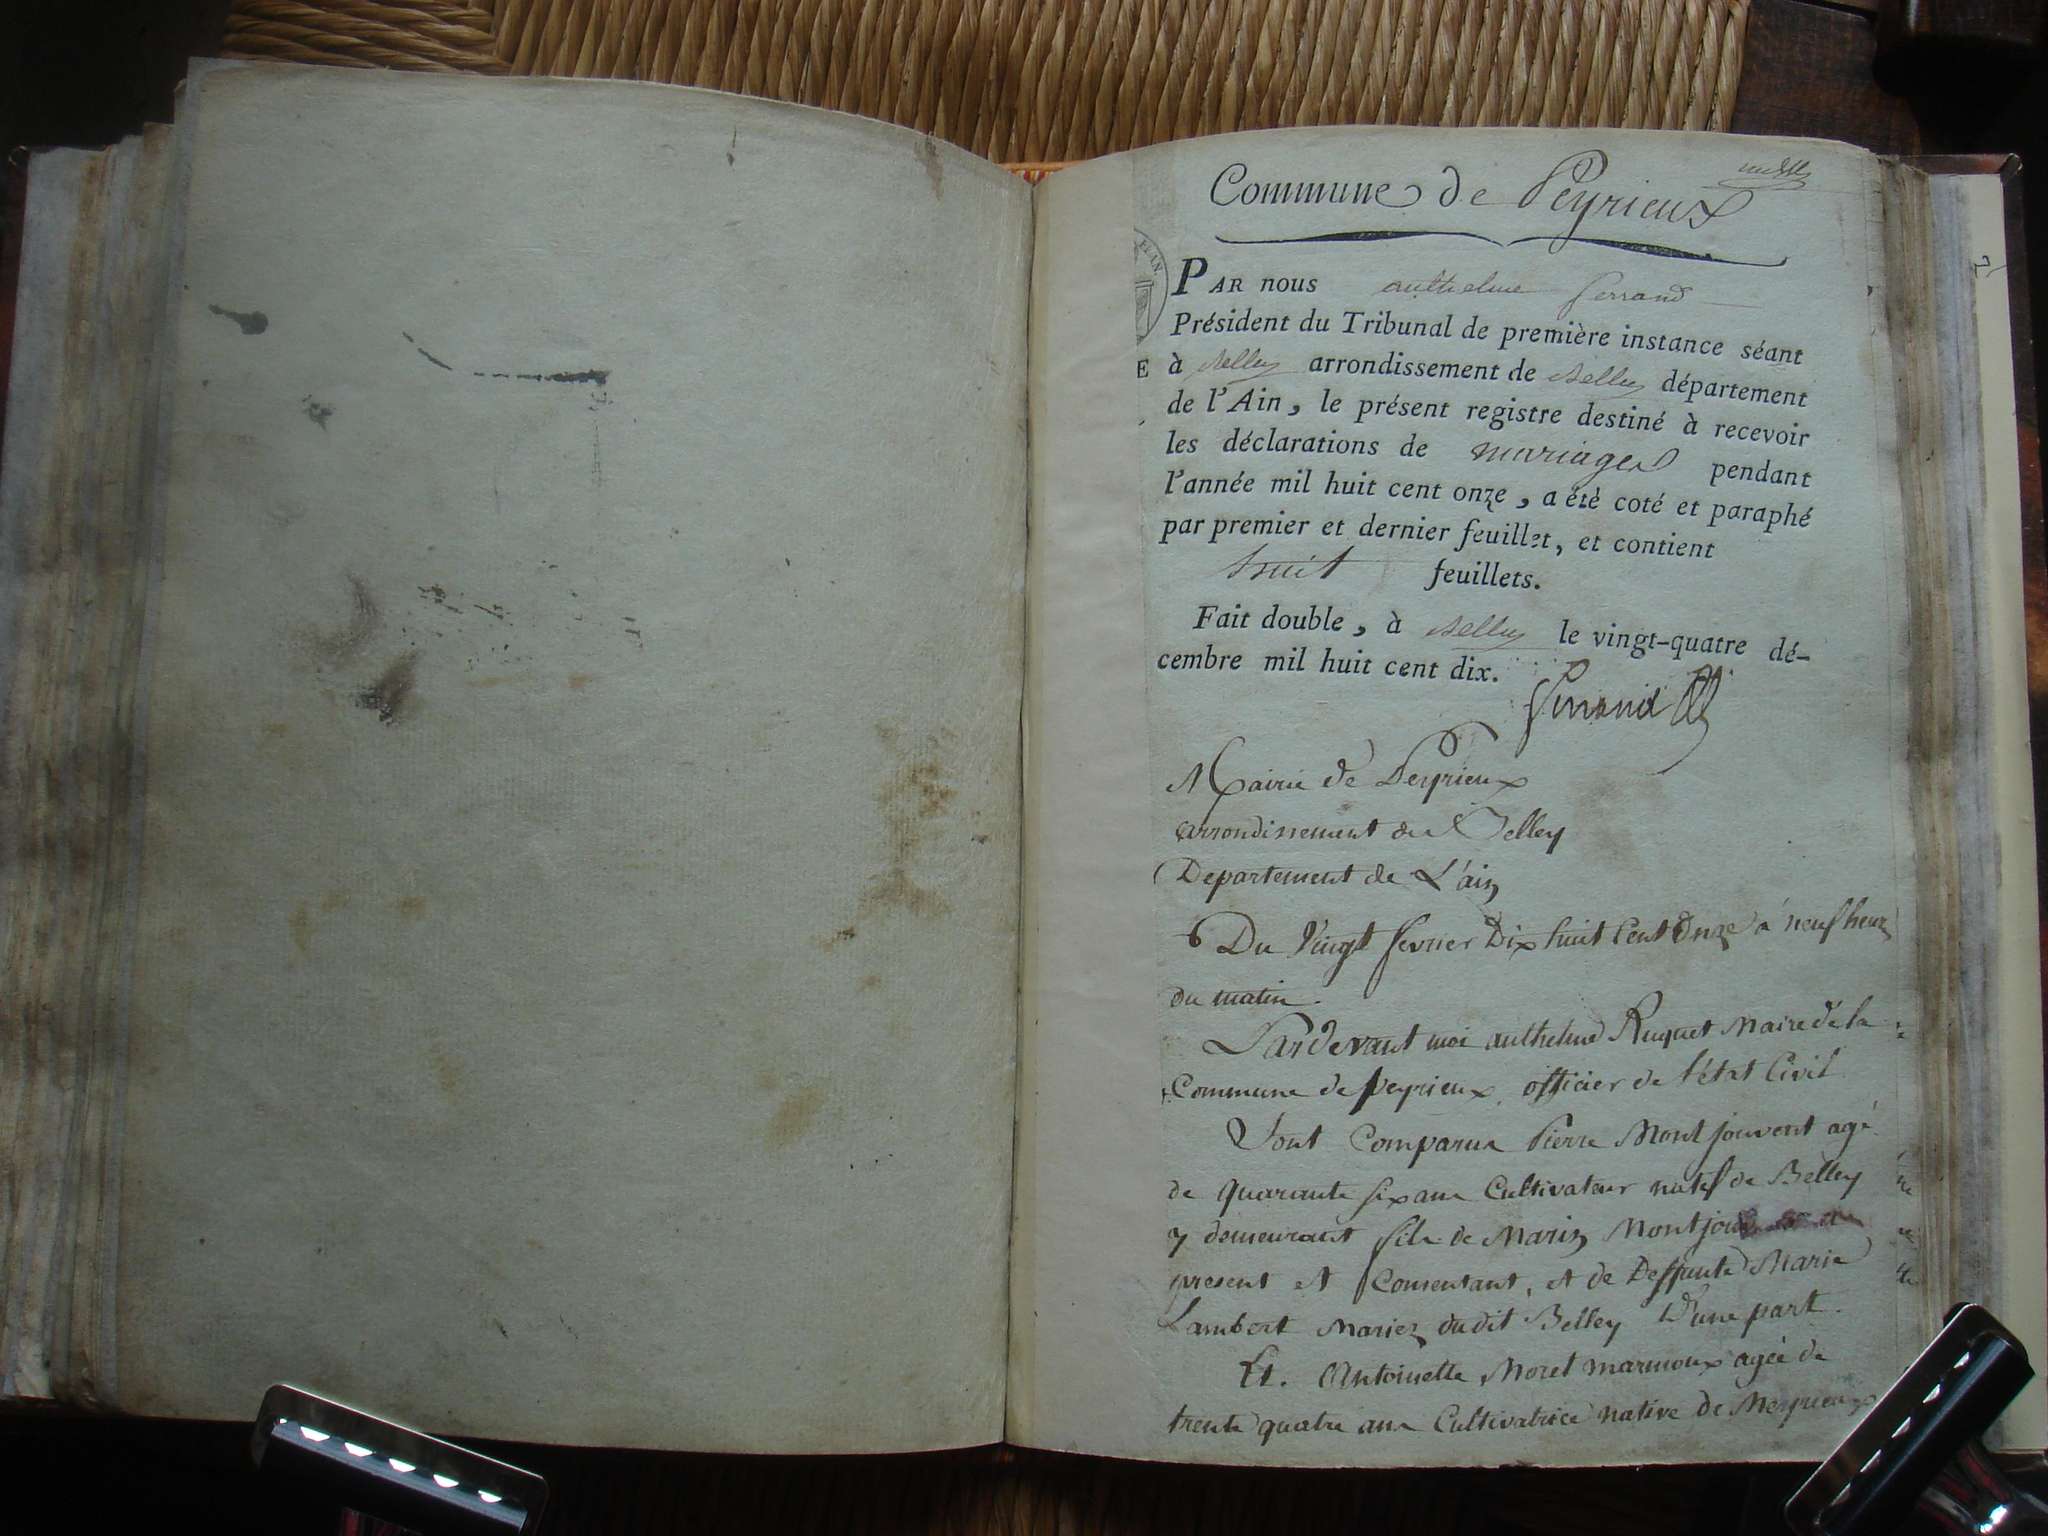 Commune de Peyrieux
PAR nous anthelme ferrand
Président du Tribunal de première instance séant
E à Belley arrondissement de Belley département
de l'Ain, le présent registre destiné à recevoir
les déclarations de mariages pendant
l'année mil huit cent onze, a été coté et paraphé
par premier et dernier feuillet, et contient
huit feuillets.
Fait double, à Belley le vingt-quatre dé-
cembre mil huit cent dix.
ferrand
Mairie de Peyrieux
arrondissement de Belley
Departement de L'ain
Du Vingt fevrier Dix huit Cent Onze á neuf heur
du matin.
Pardevant moi anthelme Ruquet Maire de la
Commune de peyrieux, officier de l'état Civil
Sont Comparus Pierre Montjouvent agé
de quarante six ans Cultivateur natif de Belley
y demeurant fils de Marin
present et Consentant, et de Deffunte Marie
Lambert Mariez dudit Belley D'une part.
Et. Antoinette Moret marmoux agée de
trente quatre ans Cultivatrice native de Meyrieux